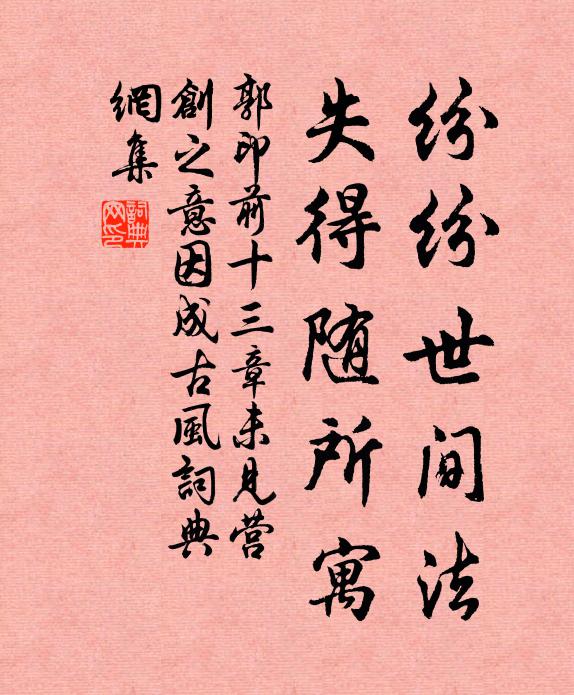 纷纷世间法
失得随所寓
郭印前十三章未见营
創之意因成古風詞典
網集
詞典
网印